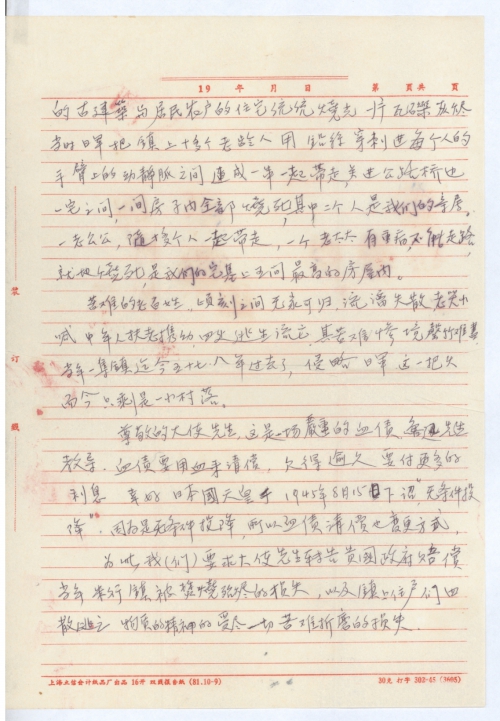 19 年 月 日 第 页共 页
的古建筑与居民农户的住宅统统烧光一片瓦砾灰烬
当时日军把镇上十多个老龄人用铅丝穿刺进每个人的
手臂上的动静脉之间连成一串一起带走,关进公路桥边
一宅之间,一间房子内全部烧死,其中二个人是我们的亲房,
一老公公,随多个人一起带走,一个老太太有重病,不能走路,
就地烧死,是我们的宅基上五间最高的房屋内。
苦难的老百姓,顷刻之间无家可归,流离失散老哭小
喊,中年人扶老携幼,四处逃生流亡,其苦难惨境罄竹难書,
当年一集镇迄今五十七八年过去了,侵略日军这一把火
而今只剩是一小村落。
尊敬的大使先生,这是一场严重的血债,鲁迅先生
教导,血债要用血来清偿,欠得愈久要付更多的
利息 幸好日本國天皇于1945年8月15日下诏"无条件投
降",因为是无条件投降,所以血债清偿也变更方式,
为此,我(们)要求大使先生转告贵國政府赔偿
当年 行镇被焚烧致烬的损失,以及镇上住户们四
散逃亡 物质的精神的受尽一切苦难折磨的损失.
装
订
线
上海立信会计纸品厂出品 16开 双线报告纸 (81.10-9)
30克 打字 302-43 (3605)